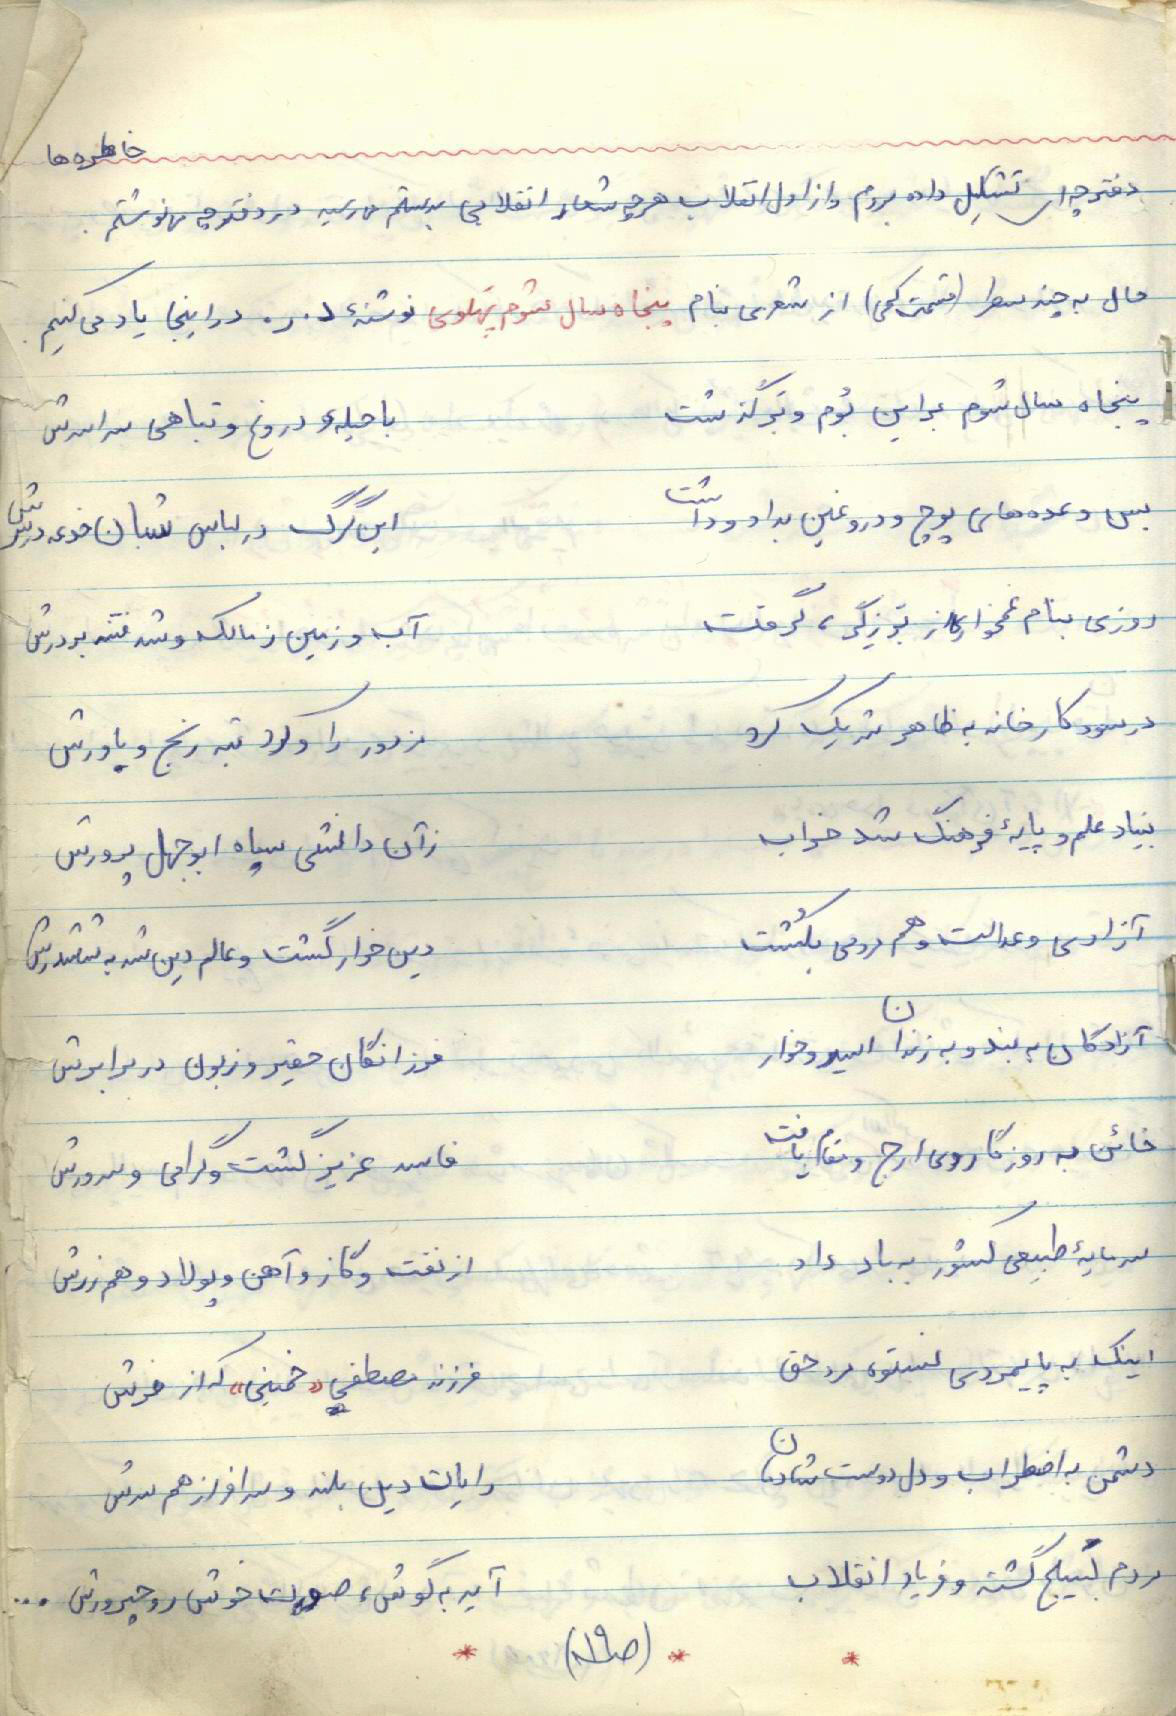 خاطره‌ها
دفترچه‌ای تشکیل داده بودم و از اول انقلاب هرچه شعار انقلابی بدستم می‌رسید در دفترچه می‌نوشتم.
حال به چند سطر (قسمت کمی) از شعری بنام پنجاه سال شوم پهلوی نوشتهٔ د.ر. در اینجا یاد می‌کنیم.
پنجاه سال شوم براین بُوم و بَر گذشت با حیله و دروغ و تباهی سراسرش
بس وعده‌های پوچ و دروغین بداد و داشت این گرگ در لباس شبان خدعه در سرش
روزی بنام غمخواری از برزیگر، گرفت آب و زمین ز مالک و شد فتنه بر درش
در سود کارخانه به ظاهر شریک کرد مزدور را و کرد تبه رنج و یاورش
بنیاد علم و پایهٔ فرهنگ شد خراب زآن دانشی سپاه ابوجهل پرورش
آزادی و عدالت و هم مردمی بکُشت دین خوار گشت و عالم دین شد به ششدرش
آزادگان به بند و به زندان اسیر و خوار فرزانگان حقیر و زبون در برابرش
خائن به روزگار وی ارج و مقام یافت فاسد عزیز گشت و گرامی و سرورش
سرمایهٔ طبیعی کشور به باد داد از نفت و گاز و آهن و پولاد و هم زرش
اینک به پایمردی نستوه مرد حق فرزند مصطفی «خمینی» که از فرش
دشمن به اضطراب و دل دوست شادمان رایات دین بلند و سرافراز هم سرش
مردم بسیج گشته و فریاد انقلاب آید به گوش، صوت خوش روحپرورش ...
* (ص۱۹) * *